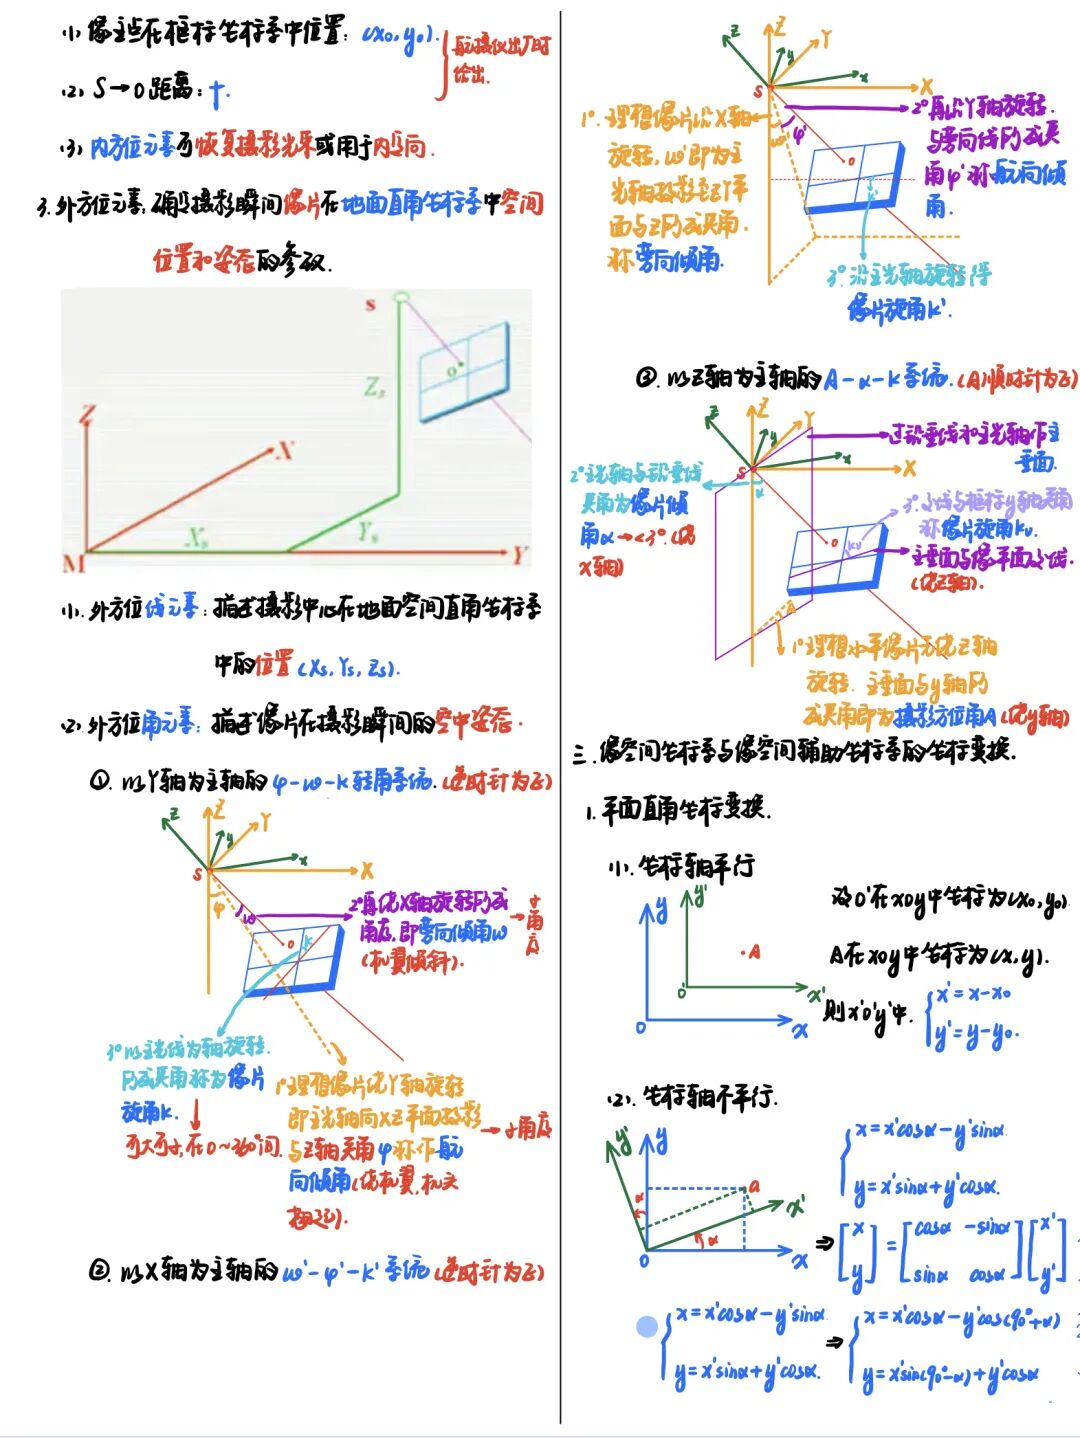 (1). 像主点在框标坐标系中位置: (x₀, y₀).
航摄仪出厂时
给出.
(2). S→O距离: f.
(3). 内方位元素可恢复摄影光束或用于内定向.
3. 外方位元素: 确定摄影瞬间像片在地面直角坐标系中空间
位置和姿态的参数.
S
o
Z
Zs
X
Xs
Ys
M
Y
(1). 外方位线元素: 描述摄影中心在地面空间直角坐标系
中的位置 (Xs, Ys, Zs).
(2). 外方位角元素: 描述像片在摄影瞬间的空中姿态.
①. 以Y轴为主轴的 φ-ω-κ 转角系统. (逆时针为正)
z
Z
y
Y
x
S
X
φ
ω
o
κ
2°再绕X轴旋转所成
角度, 即旁向倾角ω
(机翼倾斜).
→小角度
3°以主光线为轴旋转.
所成夹角称为像片
旋角κ.
可大可小, 在0~360°间.
1°理想像片绕Y轴旋转
即主光轴向XZ平面投影
与Z轴夹角φ称作航
向倾角(绕机翼, 机头
→小角度
②. 以X轴为主轴的 ω'-φ'-κ' 系统 (逆时针为正)
z
Z
y
Y
x
S
X
ω'
φ'
o
κ'
1°. 理想像片沿X轴
旋转, ω'即为主
光轴投影至ZY平
面与Z所成夹角.
称旁向倾角.
2°再沿Y轴旋转.
与旁向线所成夹
角φ'称航向倾
角.
3°. 沿主光轴旋转得
像片旋角κ'.
③. 以Z轴为主轴的 A-α-κ 系统. (A顺时针为正)
z
Z
y
Y
x
S
X
α
o
κv
A
过铅垂线和主光轴作主
垂面.
2°主光轴与铅垂线
夹角为像片倾
角α→<3°. (绕
X轴)
3°. 交线与框标y轴夹角
称像片旋角κv.
主垂面与像平面交线.
(绕Z轴).
1°理想水平像片先绕Z轴
旋转. 主垂面与y轴所
成夹角即为摄影方位角A (绕y轴)
三. 像空间坐标系与像空间辅助坐标系的坐标变换.
1. 平面直角坐标变换.
(1). 坐标轴平行
y
y'
·A
o'
x'
o
x
设O'在xoy中坐标为(x₀, y₀)
A在xoy中坐标为(x, y).
则x'o'y'中. { x' = x-x₀
y' = y-y₀.
(2). 坐标轴不平行.
y'
y
α
a
x'
α
o
x
{ x = x'cosα - y'sinα
y = x'sinα + y'cosα.
⇒ [x y] = [cosα -sinα sinα cosα] [x' y']
{ x = x'cosα - y'sinα
y = x'sinα + y'cosα.
⇒ { x = x'cosα - y'cos(90°+α)
y = x'sin(90°-α) + y'cosα